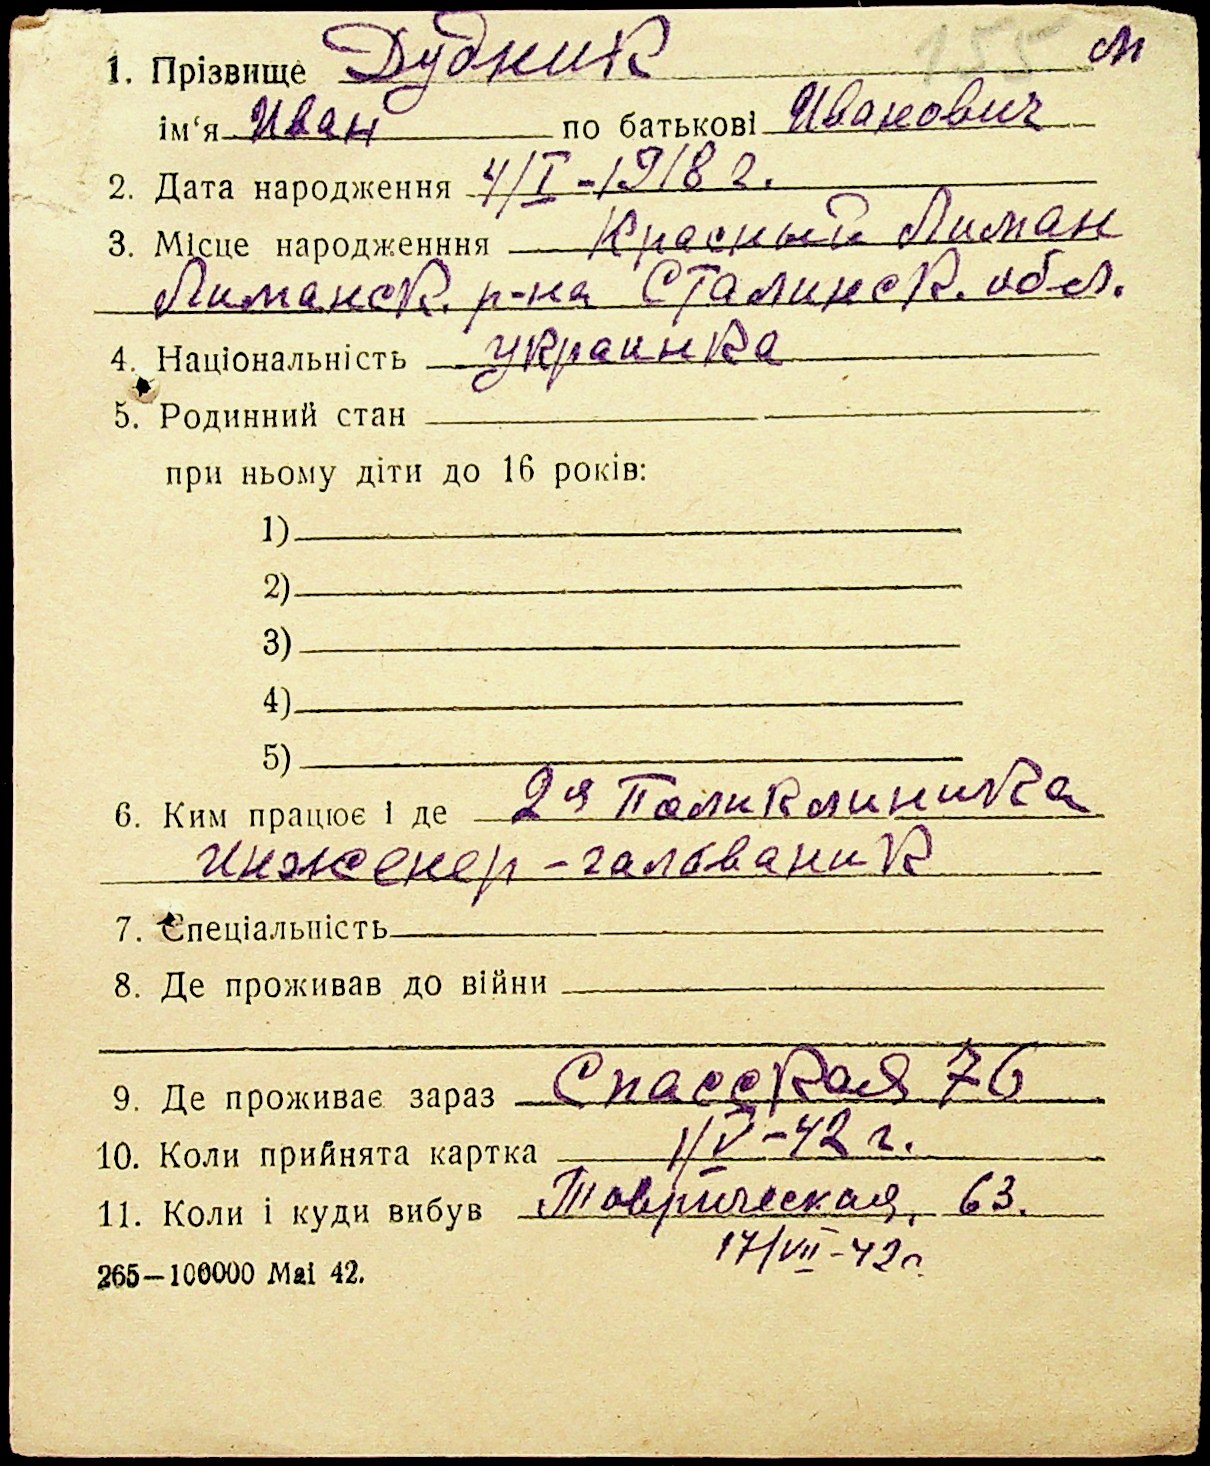 155 м
1. Прізвище Дудник
ім‘я Иван по батькові Иванович
2. Дата народження 4/I-1918 г.
3. Місце народженння Красный Лиман
Лиманск. р-на Сталинск. обл.
4. Національність украинка
5. Родинний стан
при ньому діти до 16 років:
1)
2)
3)
4)
5)
6. Ким працює і де 2я Поликлиника
инженер-гальваник
7. Спеціальність
8. Де проживав до війни
9. Де проживає зараз Спасская 76
10. Коли прийнята картка 1/V-42 г.
11. Коли і куди вибув Таврическая, 63.
17/VII-42г
265—100000 Mai 42.